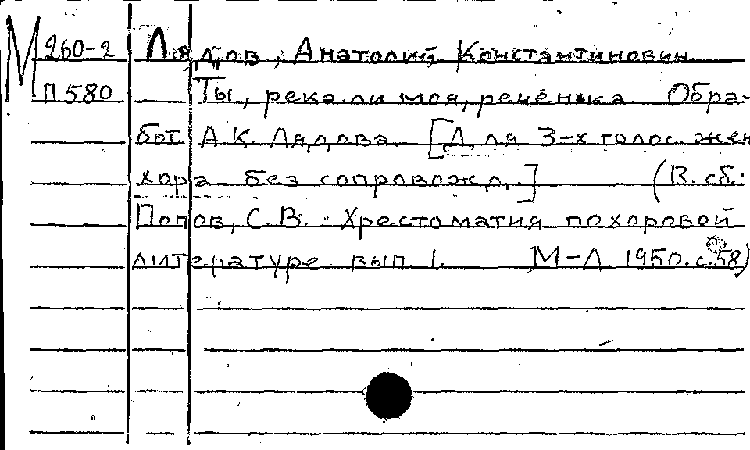 М 260-2 Лядов, Анатолий Константинович
П 580 Ты, река ли моя, реченька Обра-
бот. А.К. Лядова [Для 3-х голос. жен
хора без сопровожд.] (В сб.:
Попов, С.В. Хрестоматия по хоровой
литературе вып 1. М-Л 1950. с.58)